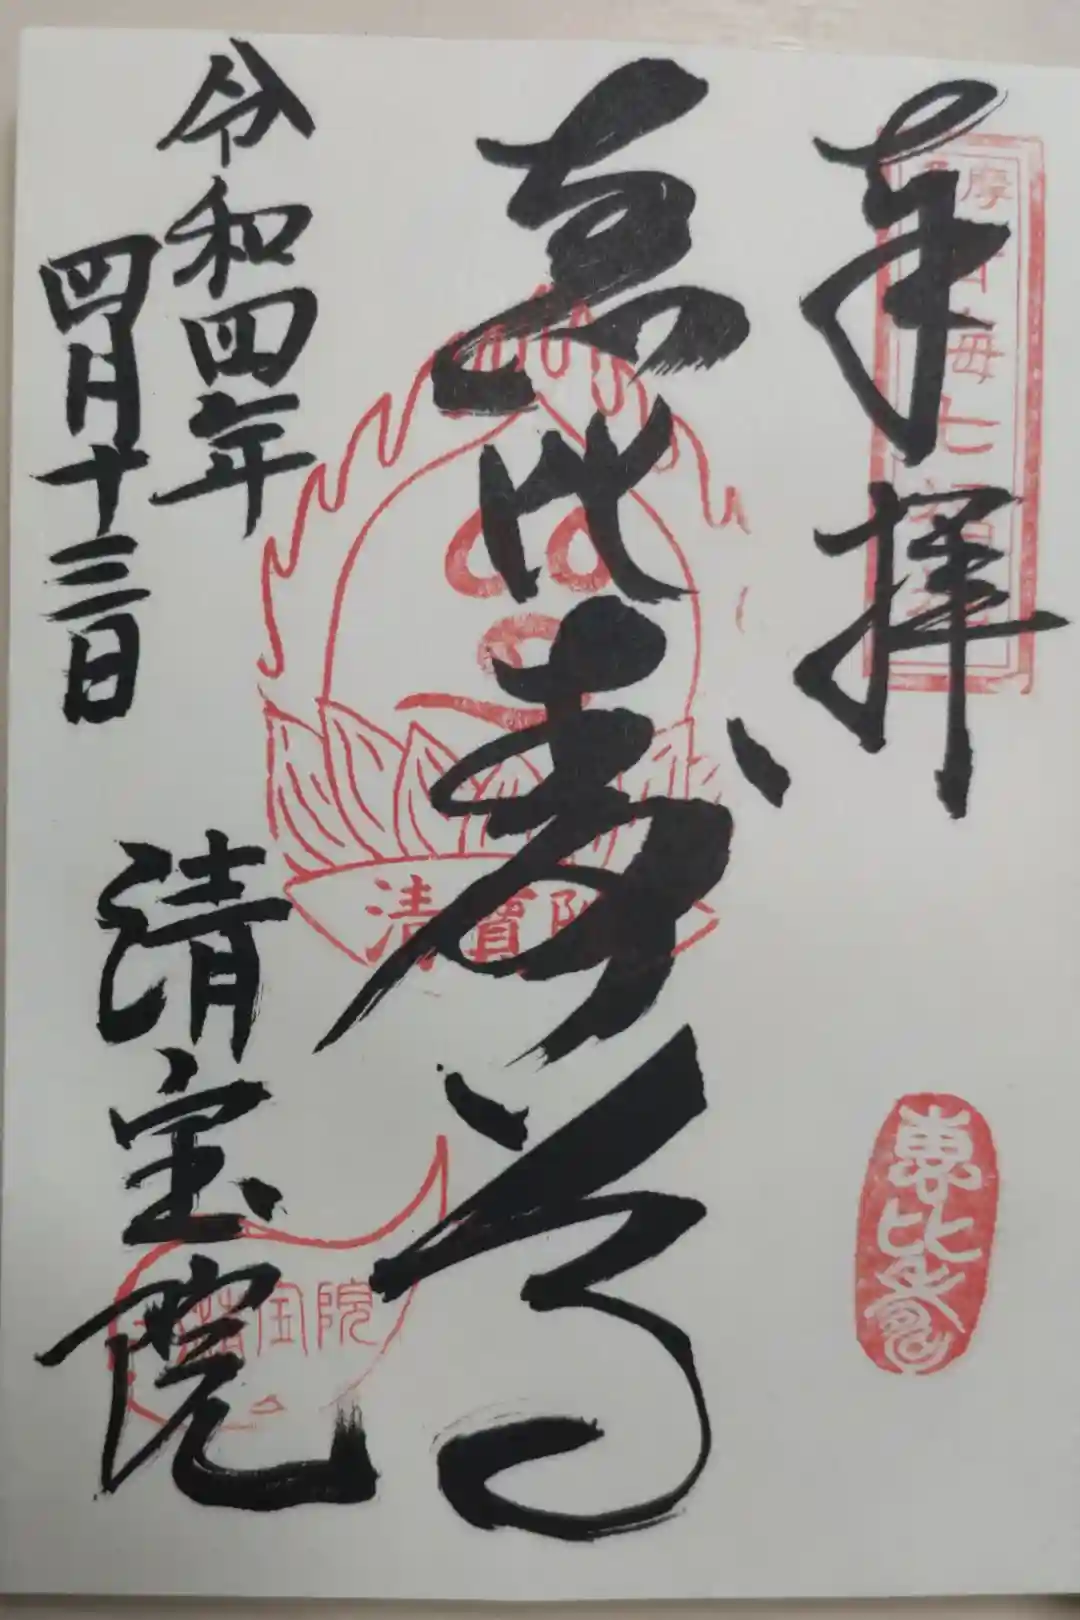 奉拝
恵比寿尊
令和四年
四月十三日
清宝院
七
清寶院
恵比寿
宝院